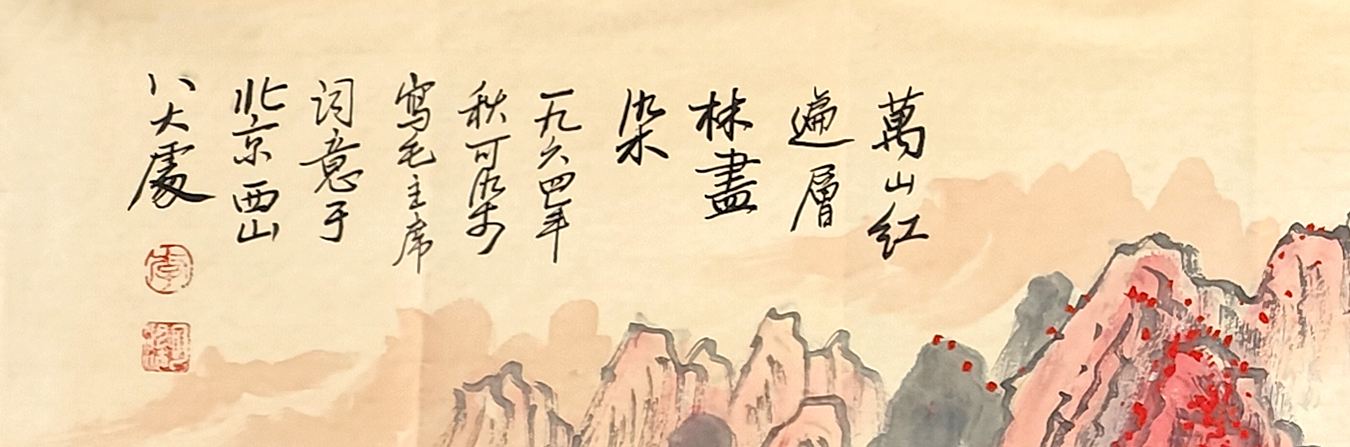 萬山红
遍層
林盡
染
一九六四年
秋可染
寫毛主席
词意于
北京西山
八大處
李